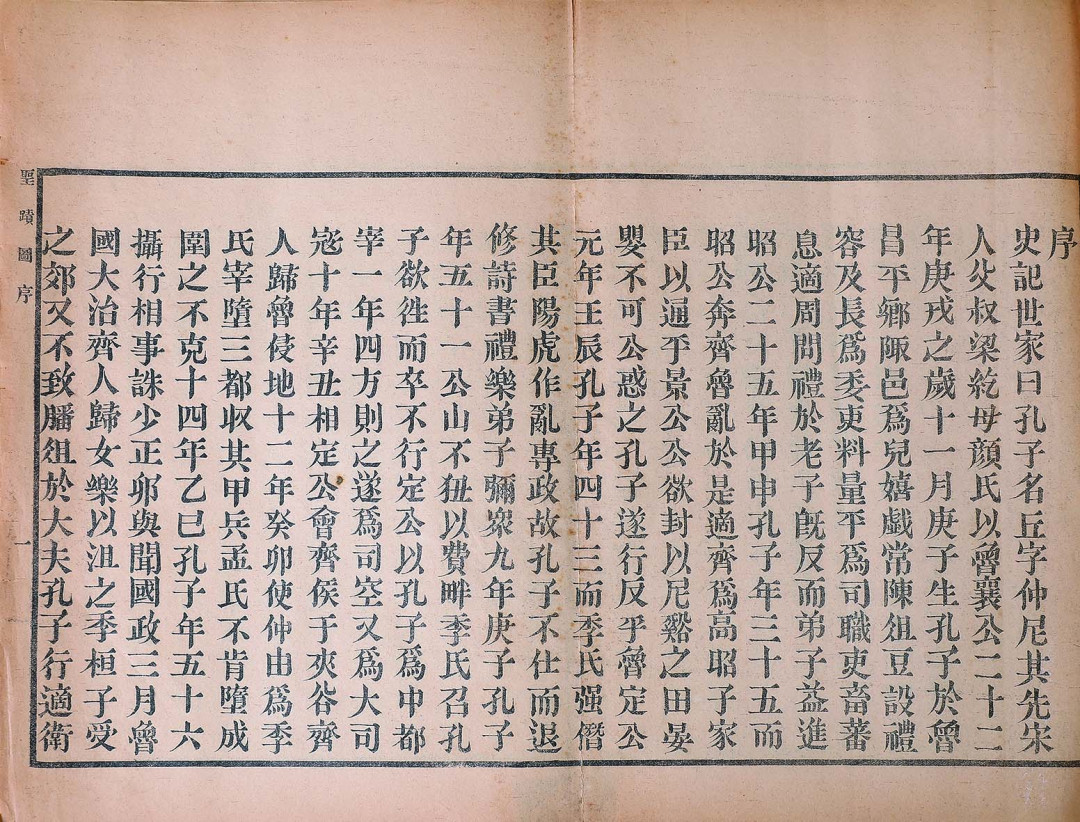 序
史記世家曰孔子名丘字仲尼其先宋
人父叔梁紇母顔氏以魯襄公二十二
年庚戌之歲十一月庚子生孔子於魯
昌平鄉陬邑爲兒嬉戲常陳俎豆設禮
容及長爲委吏料量平爲司職吏畜蕃
息適周問禮於老子旣反而弟子益進
昭公二十五年甲申孔子年三十五而
昭公奔齊魯亂於是適齊爲高昭子家
臣以通乎景公公欲封以尼谿之田晏
嬰不可公惑之孔子遂行反乎魯定公
元年壬辰孔子年四十三而季氏强僭
其臣陽虎作亂專政故孔子不仕而退
修詩書禮樂弟子彌衆九年庚子孔子
年五十一公山不狃以費畔季氏召孔
子欲往而卒不行定公以孔子爲中都
宰一年四方則之遂爲司空又爲大司
寇十年辛丑相定公會齊侯于夾谷齊
人歸魯侵地十二年癸卯使仲由爲季
氏宰墮三都收其甲兵孟氏不肯墮成
圍之不克十四年乙巳孔子年五十六
攝行相事誅少正卯與聞國政三月魯
國大治齊人歸女樂以沮之季桓子受
之郊又不致膰俎於大夫孔子行適衛
聖蹟圖序 一